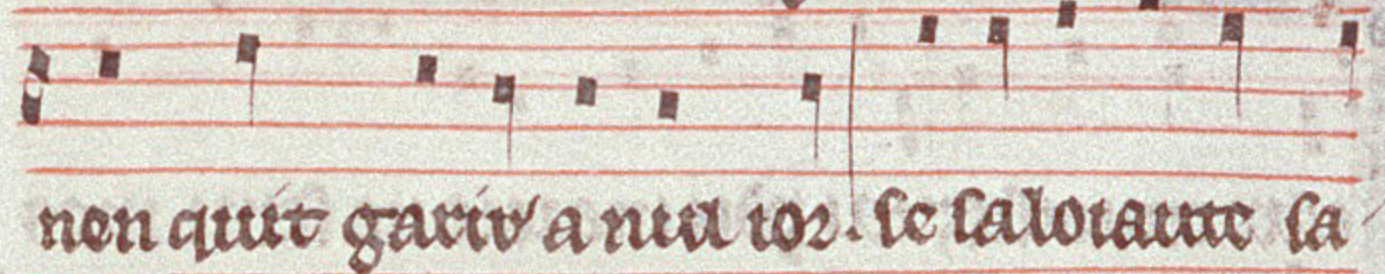 nen quit garir a nul ior. se saloiaute sa